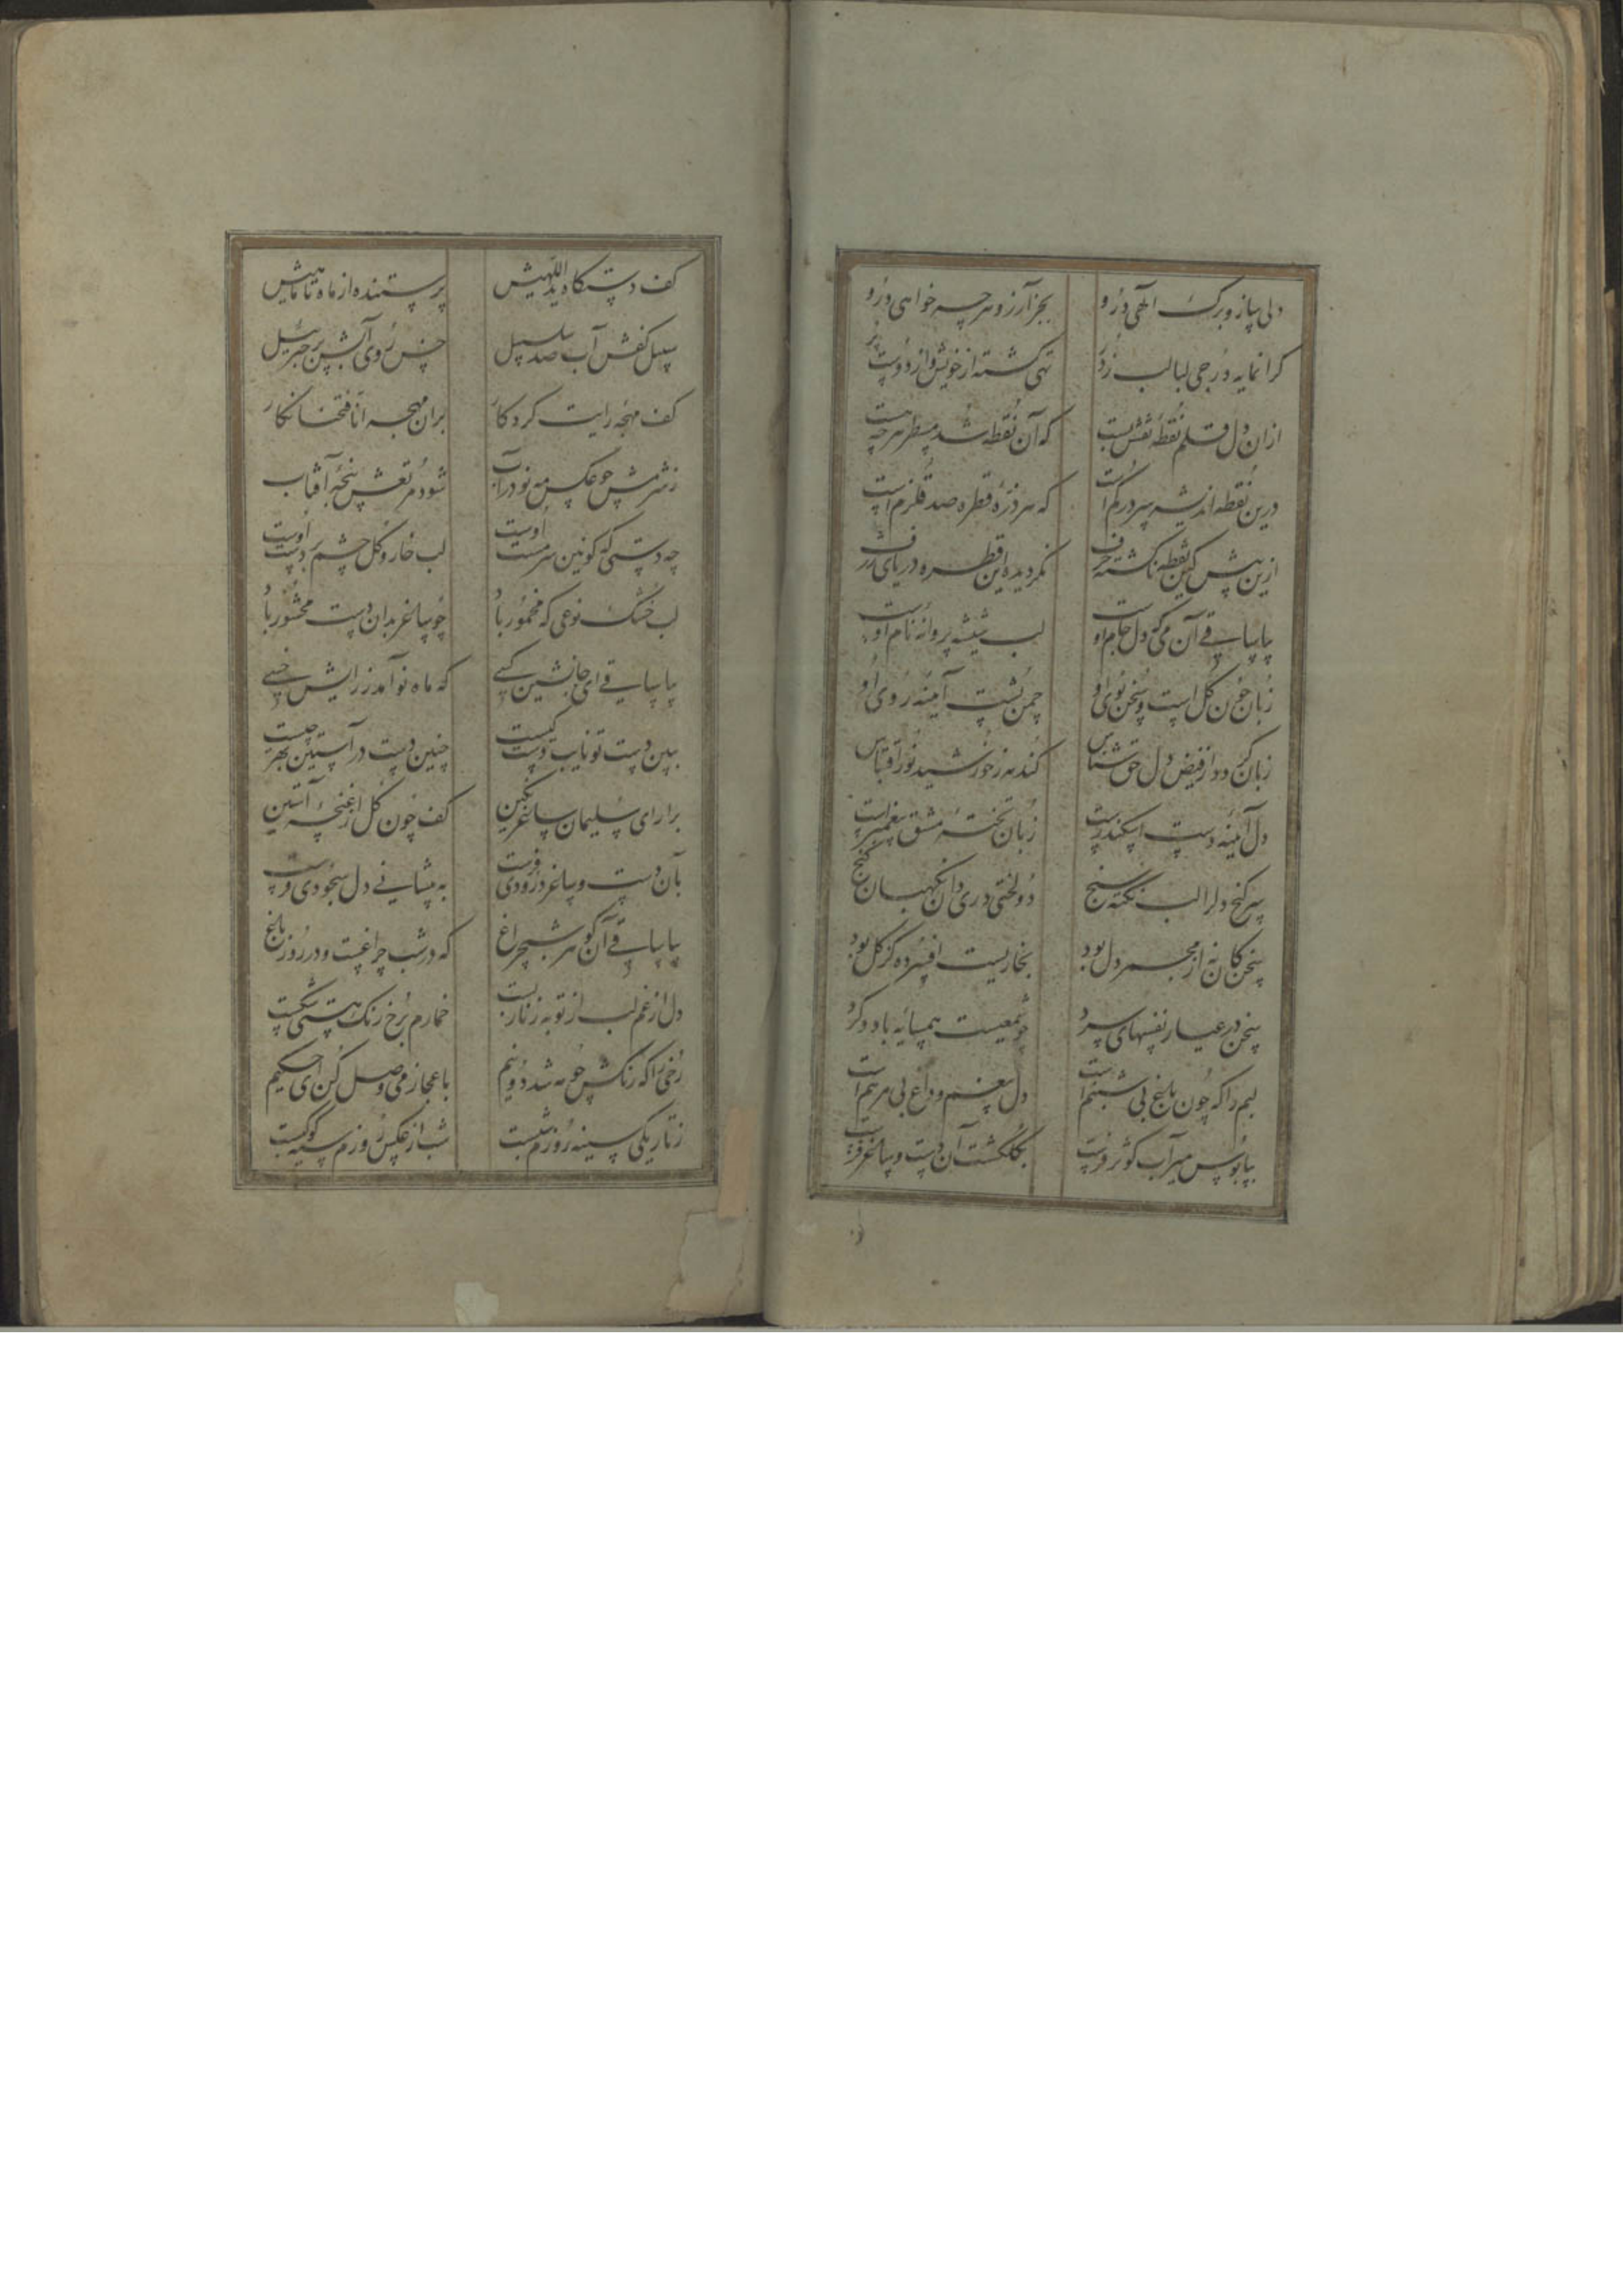 دلی ساز و برگ الهی درو بجز آرزو هر چه خواهی درو
کرانمایه درجی لبالب ز در تهی کشته از خویش و از دوست پر
ازان دل قلم نقطه نقش بست که آن نقطه شد مسطر هر چه هست
درین نقطه اندیشه سر در کم است که هر ذره قطره صد قلزم است
ازین پیش کین نقطه نکشته حرف نکردیده این قطره دریای ژرف
بیا ساقی آن می که دل جام اوست لب شیشه پروانه نام اوست
زبان چون کل است و سخن بوی او چمن پشت آینه روی او
زبان کر دود از فیض دل حق شناس کند مه ز خورشید نور اقتباس
دل آئینه دست اسکندرست زبان تخته مشق پیغمبرست
سر کنج دلرا لب نکته سنج دو لختی دری دان نکهبان کنج
سخن کان نه از مجمر دل بود بخاریست افسرده کز کل بود
سخن در عیار نفسهای سرد چو شمعیست همسایه باد و کرد
لبم را که چون باغ بی شبنم است دل پر غم و داغ بی مرهم است
بپابوس میرآب کوثر فرست بکلکشت آن دست و ساغر فرست
کف دستکاه ید اللهیش پرستنده از ماه تا ماهیش
سبیل کفش آب صد سلسبیل خس روی آبش پر جبرئیل
کف مهجه رایت کردکار بران مهجه انا فتحنا نکار
ز شرمش چو عکس مه نو در آب شود مرتعش پنجه آفتاب
چه دستی که کونین سرمست اوست لب خار و کل چشم بر دست اوست
لب خشک نوعی که مخمور باد چو ساغر بدان دست محشور باد
بیا ساقی ای جانشین کسی که ماه نو آمد ز رایش خسی
ببین دست تو نایب دست کیست چنین دست در آستین بهر چیست
برارای سلیمان ساغر نکین کف چون کل از غنچه آستین
بآن دست و ساغر درودی فرست به پیشانی دل سجودی فرست
بیا ساقی آن کوهر شبچراغ که در شب چراغست و در روز باغ
دل از غم لب از توبه زنار بست خمارم برخ رنک هستی شکست
رخی را که رنکش چو مه شد دو نیم باعجاز می وصل کن ای حکیم
ز تاریکی سینه روزم شبست شب از عکس روزم سیه کوکبست